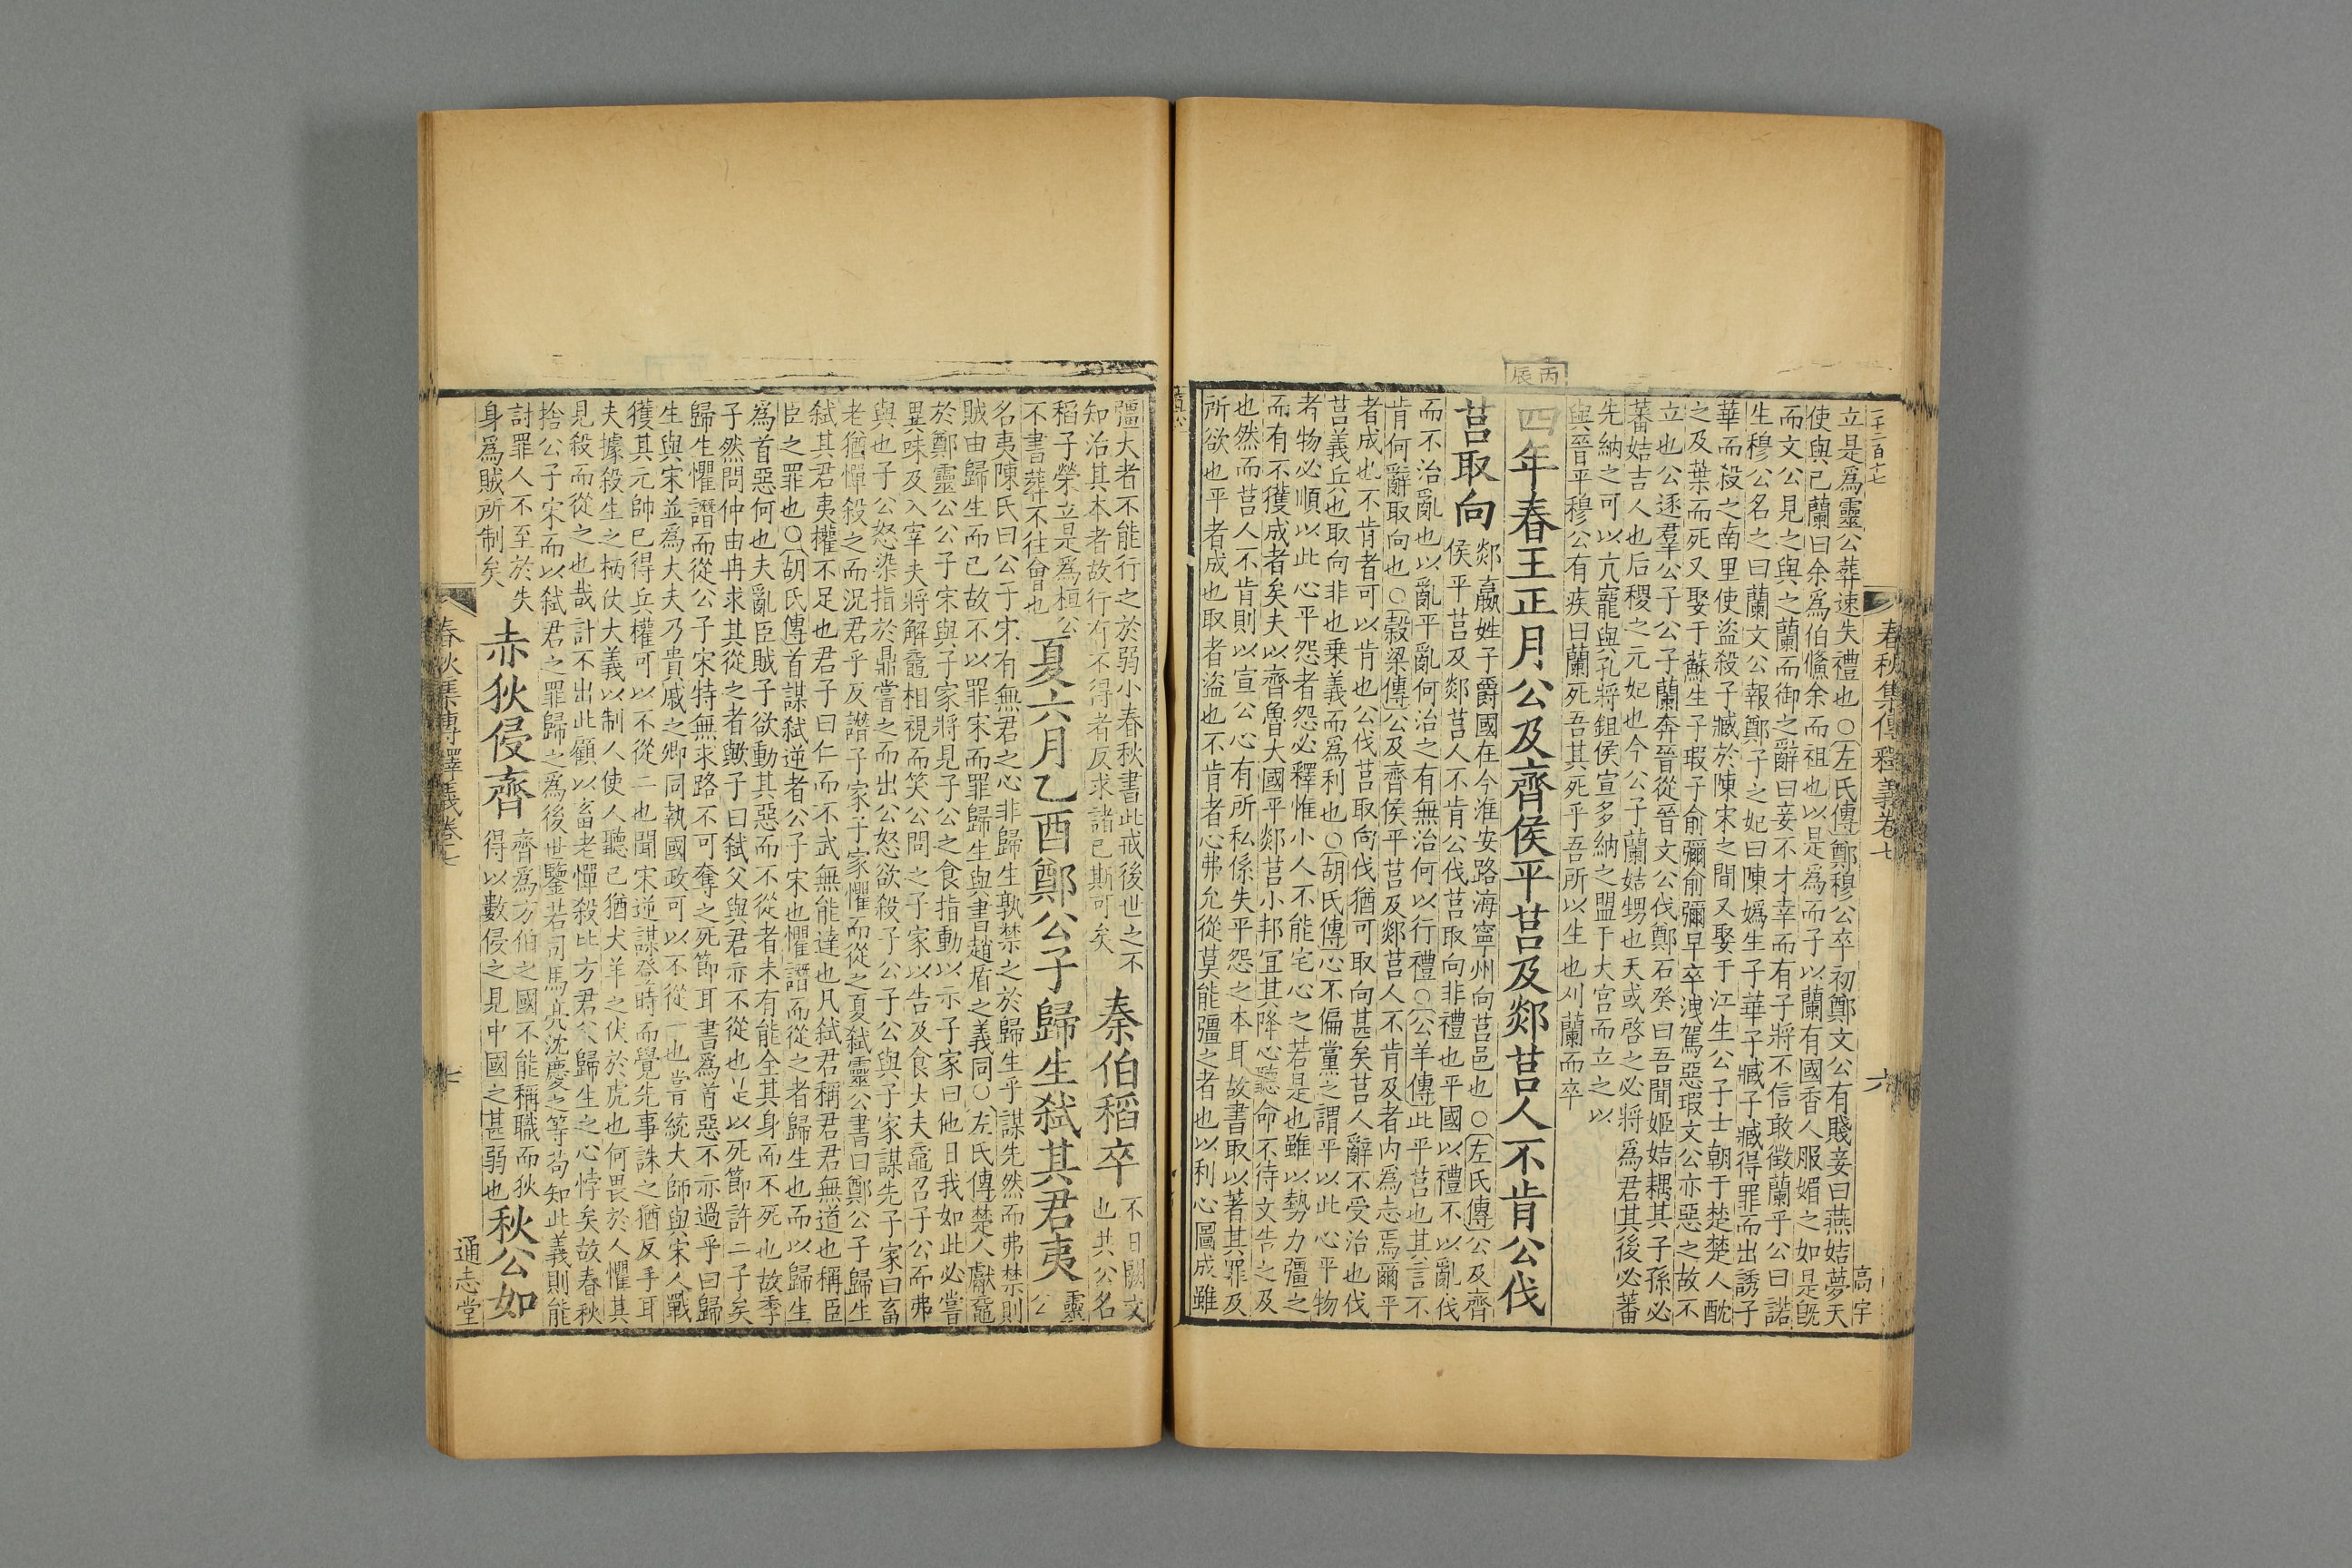 二千二百十七
春秋集傳釋義卷七
六
高宇
立是爲靈公葬速失禮也○左氏傳鄭穆公卒初鄭文公有賤妾曰燕姞夢天
使與已蘭曰余爲伯鯈余而祖也以是爲而子以蘭有國香人服媚之如是旣
而文公見之與之蘭而御之辭曰妾不才幸而有子將不信敢徵蘭乎公曰諾
生穆公名之曰蘭文公報鄭子之妃曰陳嬀生子華子臧子臧得罪而出誘子
華而殺之南里使盜殺子臧於陳宋之間又娶于江生公子士朝于楚楚人酖
之及葉而死又娶于蘇生子瑕子俞彌俞彌早卒洩駕惡瑕文公亦惡之故不
立也公逐羣公子公子蘭奔晉從晉文公伐鄭石癸曰吾聞姬姞耦其子孫必
蕃姞吉人也后稷之元妃也今公子蘭姞甥也天或啓之必將爲君其後必蕃
先納之可以亢寵與孔將鉏侯宣多納之盟于大宮而立之以
與晉平穆公有疾曰蘭死吾其死乎吾所以生也刈蘭而卒
丙辰
四年春王正月公及齊侯平莒及郯莒人不肯公伐
莒取向
郯嬴姓子爵國在今淮安路海寧州向莒邑也○左氏傳公及齊
侯平莒及郯莒人不肯公伐莒取向非禮也平國以禮不以亂伐
而不治亂也以亂平亂何治之有無治何以行禮○公羊傳此平莒也其言不
肯何辭取向也○穀梁傳公及齊侯平莒及郯莒人不肯及者內爲志焉爾平
者成也不肯者可以肯也公伐莒取向伐猶可取向甚矣莒人辭不受治也伐
莒義兵也取向非也乗義而爲利也○胡氏傳心不偏黨之謂平以此心平物
者物必順以此心平怨者怨必釋惟小人不能宅心之若是也雖以勢力彊之
而有不獲成者矣夫以齊魯大國平郯莒小邦宜其降心聽命不待文告之及
也然而莒人不肯則以宣公心有所私係失平怨之本耳故書取以著其罪及
所欲也平者成也取者盜也不肯者心弗允從莫能彊之者也以利心圖成雖
彊大者不能行之於弱小春秋書此戒後世之不
知治其本者故行有不得者反求諸已斯可矣
秦伯稻卒
不日闕文
也共公名
稻子榮立是爲桓公
不書葬不往會也
夏六月乙酉鄭公子歸生弑其君夷
靈
公
名夷陳氏曰公子宋有無君之心非歸生孰禁之於歸生乎謀先然而弗禁則
賊由歸生而已故不以罪宋而罪歸生與書趙盾之義同○左氏傳楚人獻黿
於鄭靈公公子宋與子家將見子公之食指動以示子家曰他日我如此必嘗
異味及入宰夫將解黿相視而笑公問之子家以告及食大夫黿召子公而弗
與也子公怒染指於鼎嘗之而出公怒欲殺子公子公與子家謀先子家曰畜
老猶憚殺之而況君乎反譖子家子家懼而從之夏弑靈公書曰鄭公子歸生
弑其君夷權不足也君子曰仁而不武無能達也凡弑君稱君君無道也稱臣
臣之罪也○胡氏傳首謀弑逆者公子宋也懼譖而從之者歸生也而以歸生
爲首惡何也夫亂臣賊子欲動其惡而不從者未有能全其身而不死也故季
子然問仲由冉求其從之者歟子曰弑父與君亦不從也是以死節許二子矣
歸生懼譖而從公子宋特無求路不可奪之死節耳書爲首惡不亦過乎曰歸
生與宋並爲大夫乃貴戚之卿同執國政可以不從一也嘗統大師與宋人戰
獲其元帥已得兵權可以不從二也聞宋逆謀登時而覺先事誅之猶反手耳
夫據殺生之柄仗大義以制人使人聽已猶犬羊之伏於虎也何畏於人懼其
見殺而從之也哉計不出此顧以畜老憚殺比方君父歸生之心悖矣故春秋
捨公子宋而以弑君之罪歸之爲後世鑒若司馬亮沈慶之等苟知此義則能
討罪人不至於失
身爲賊所制矣
赤狄侵齊
齊爲方伯之國不能稱職而狄
得以數侵之見中國之甚弱也
秋公如
春秋集傳釋義卷七
七
通志堂